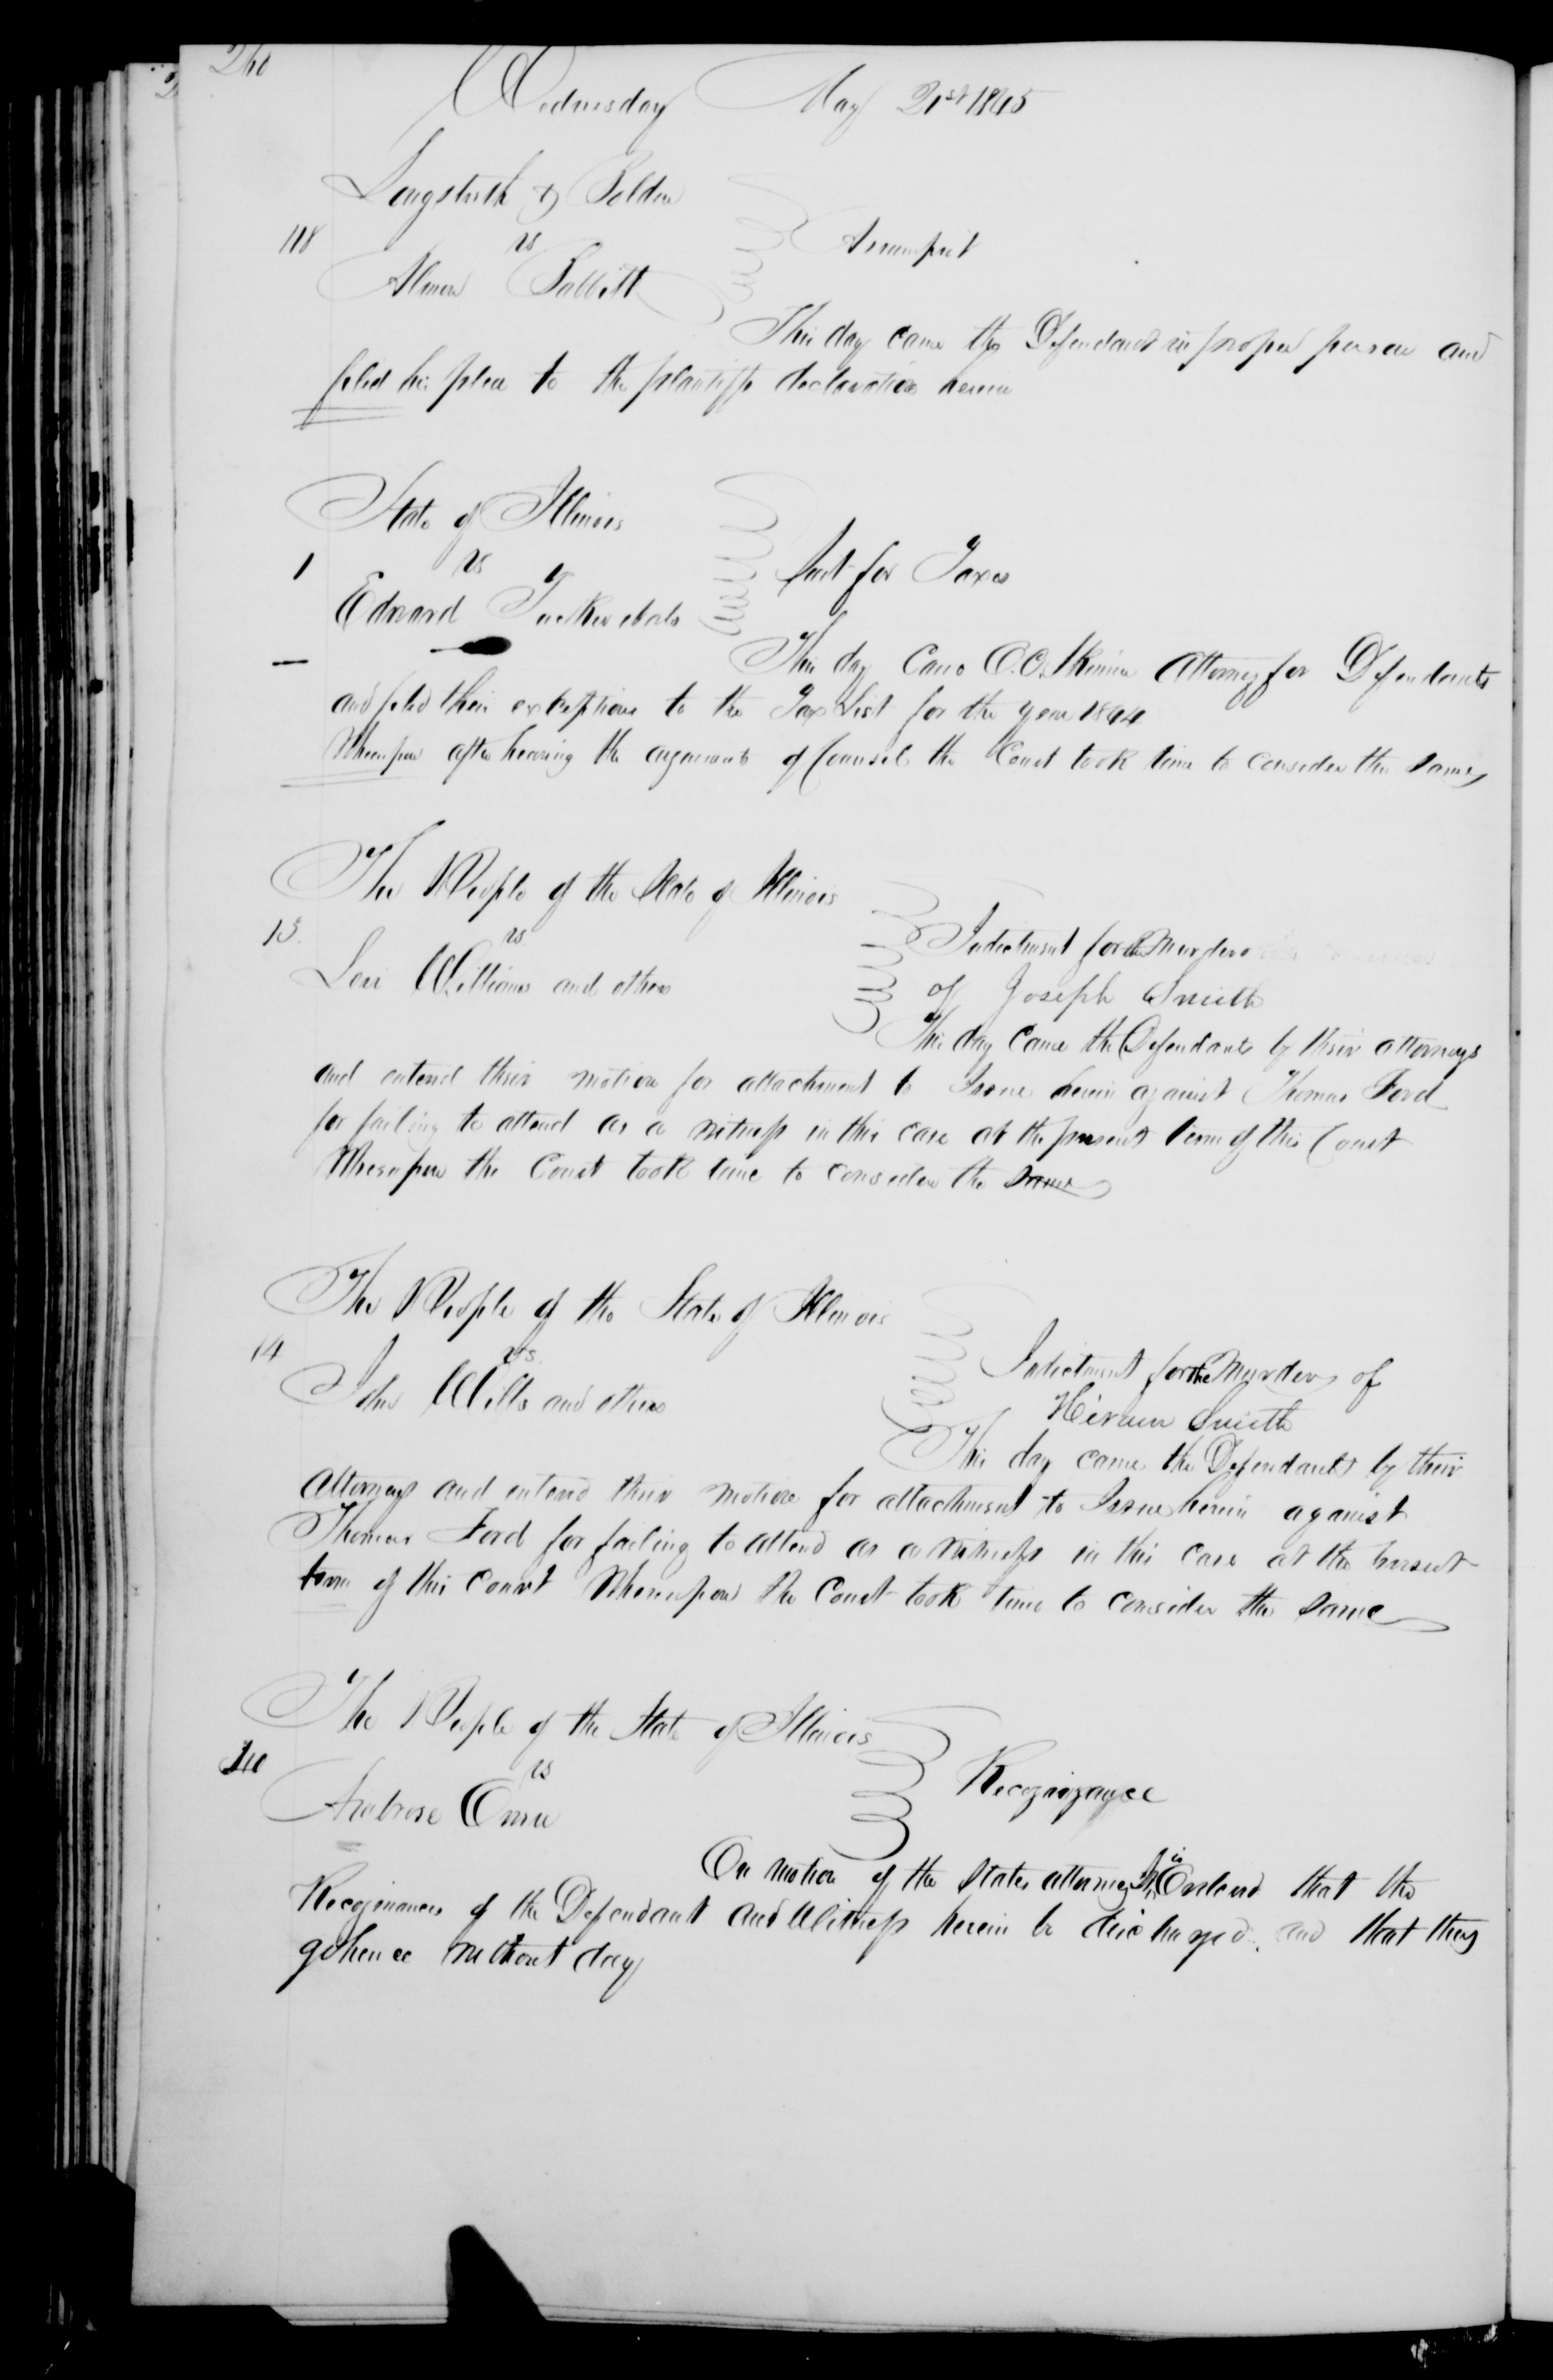 260
Wednesday May 21st 1845
Longstreth &
118 vs Assumpsit
Almon Babbitt
This day came the Defendant in proper person and
filed his plea to the plantiffs declaration herein
State of Illinois
1 vs Suit for Taxes
Edward Tucker et als
This day Came O.C. Skinner Attorney for Defendants
and filed their exceptions to the Tax List for the year 1844
Whereupon after hearing the arguments of Counsel the Court took time to consider the same
The People of the State of Illinois
13. vs Indictment for the Murder
Levi Williams and others of Joseph Smith
This day Came the Defendants by their attorneys
and enterd their motion for attachment to Issue herein against Thomas Ford
for failing to attend as a witness in this case at the present term of this Court
Whereupon the Court took time to consider the same
The People of the State of Illinois
14 vs. Indictment for the Murder of
John Wills and others Hiram Smith
This day came the Defendants by their
Attorneys and enterd their motion for attachment to Issue herein against
Thomas Ford for failing to attend as a witness in this case at the present
term of this Court Whereupon the Court took time to consider the same
The People of the State of Illinois
vs Recognizance
Ambrose
On motion of the States attorney It is Orderd that the
Recognances of the Defendant and Witness herein be discharged. and that they
go hence without day